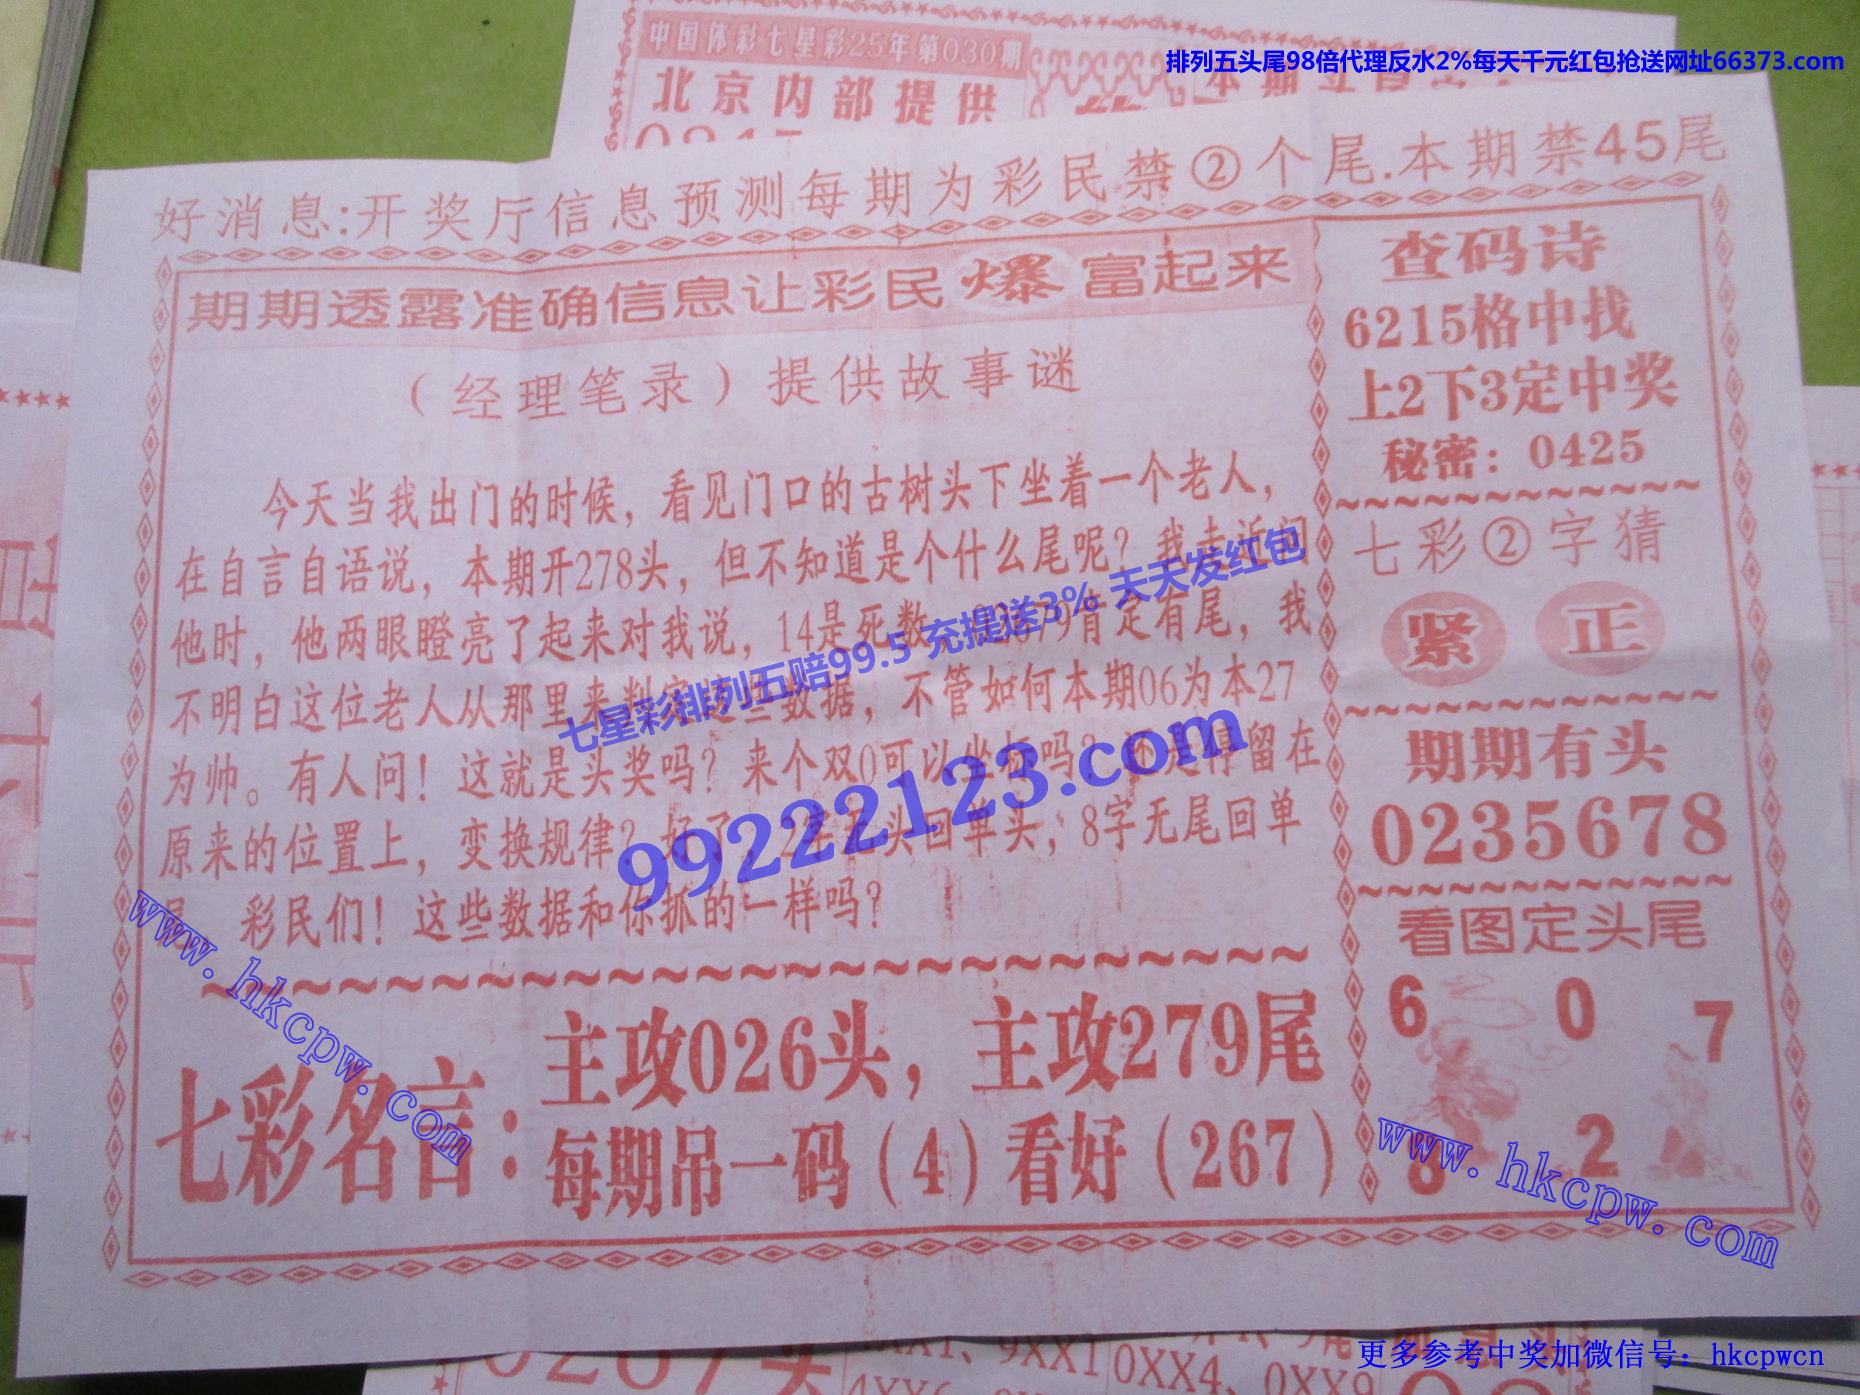 排列五头尾98倍代理反水2%每天千元红包抢送网址66373.com
中国体彩七星彩25年第030期
北京内部提供
好消息:开奖厅信息预测每期为彩民禁②个尾.本期禁45尾
期期透露准确信息让彩民爆富起来
（经理笔录）提供故事谜
今天当我出门的时候，看见门口的古树头下坐着一个老人，
在自言自语说，本期开278头，但不知道是个什么尾呢？我走近问
他时，他两眼瞪亮了起来对我说，14是死数，79肯定有尾，我
不明白这位老人从那里来判定这些数据，不管如何本期06为本27
为帅。有人问！这就是头奖吗？来个双0可以坐标吗？还是停留在
原来的位置上，变换规律？好了，2字头回单头，8字无尾回单
尾 彩民们！这些数据和你抓的一样吗？
七彩名言：
主攻026头，主攻279尾
每期吊一码（4）看好（267）
查码诗
6215格中找
上2下3定中奖
秘密：0425
七彩②字猜
紧 正
期期有头
0235678
看图定头尾
6 0 7
2
七星彩排列五赔99.5 充提送3% 天天发红包
99222123.com
www.hkcpw.com
www.hkcpw.com
0XX4、0XX9
更多参考中奖加微信号：hkcpwcn